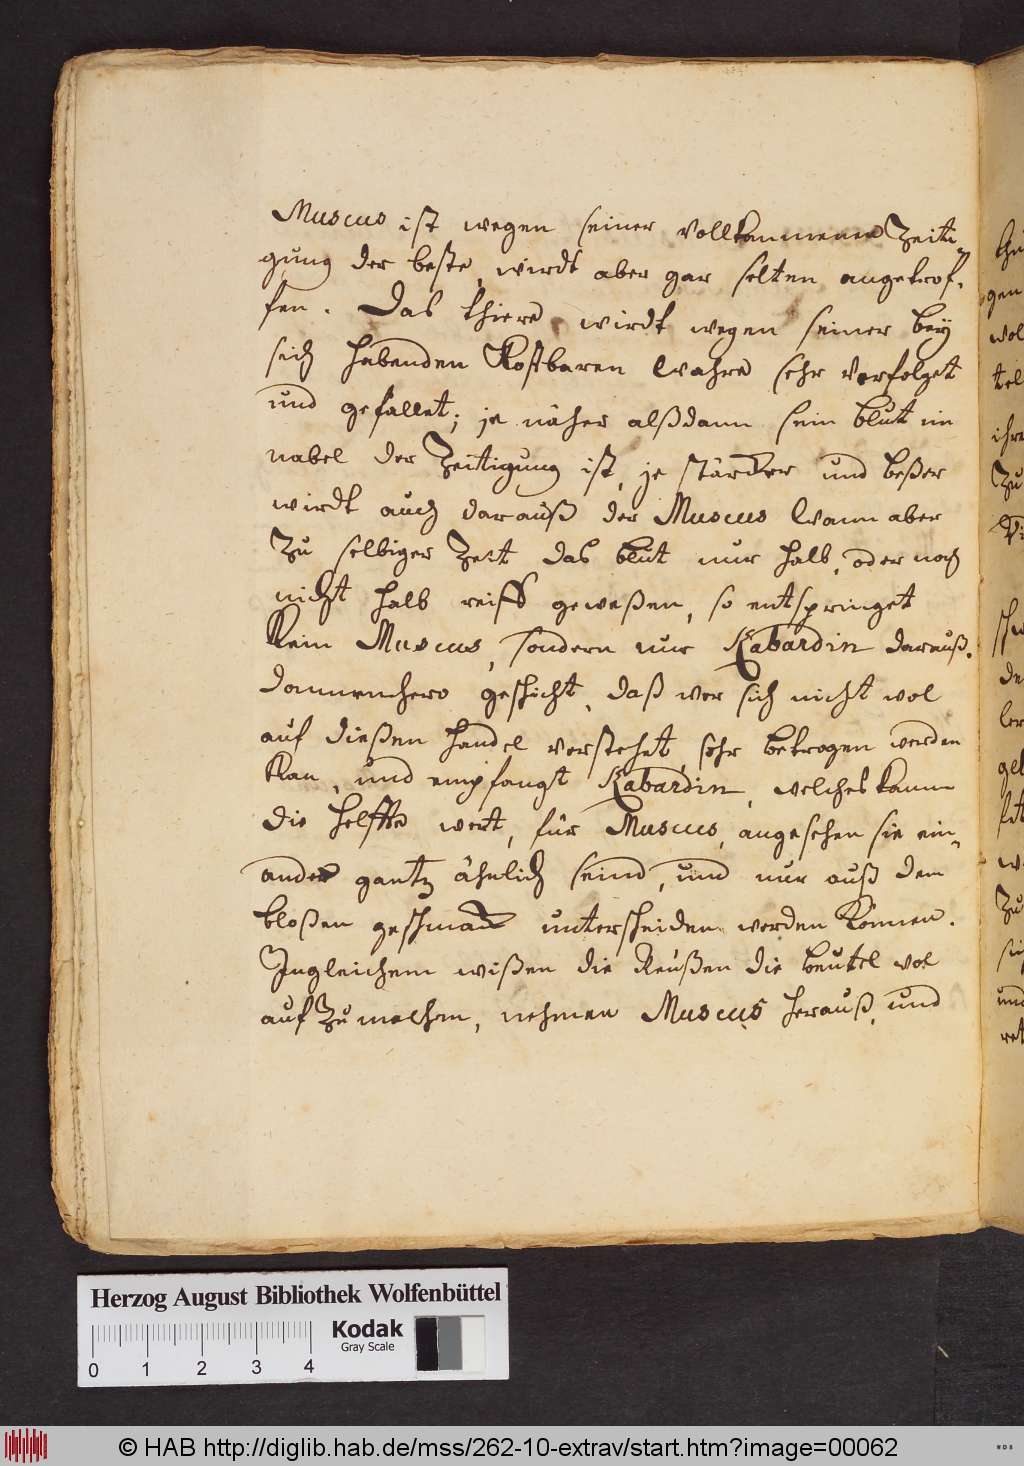 Muscus ist wegen seiner vollkommenen Zeiti-
gung der beste, wirdt aber gar selten angetrof-
fen. Das thiere wirdt wegen seiner bey
sich habenden Kostbaren Wahre sehr verfolget
und gefället; je näher alßdann sein blut im
nabel der Zeitigung ist, je stärcker und beßer
wirdt auch darauß der Muscus Wann aber
Zu selbiger Zeit das blut nur halb, oder noch
nicht halb reiff geweßen, so entspringet
Kein Muscus, sondern nur Kabardin darauß.
Dannenhero geschicht, daß wer sich nicht wol
auf dießen handel verstehet, sehr betrogen werden
Kan, und empfangt Kabardin, welches kaum
die helffte wert, für Muscus, angesehen sie ein-
ander gantz ähnlich seind, und nur auß dem
bloßen geschmack unterscheiden werden Können.
Ingleichem wißen die Reußen die beutel wol
auf Zu machen, nehmen Muscus herauß, und
gen
wol
tel
ihre
Zu
de
ler
Zu
und
Herzog August Bibliothek Wolfenbüttel
Kodak
Gray Scale
0 1 2 3 4
© HAB http://diglib.hab.de/mss/262-10-extrav/start.htm?image=00062